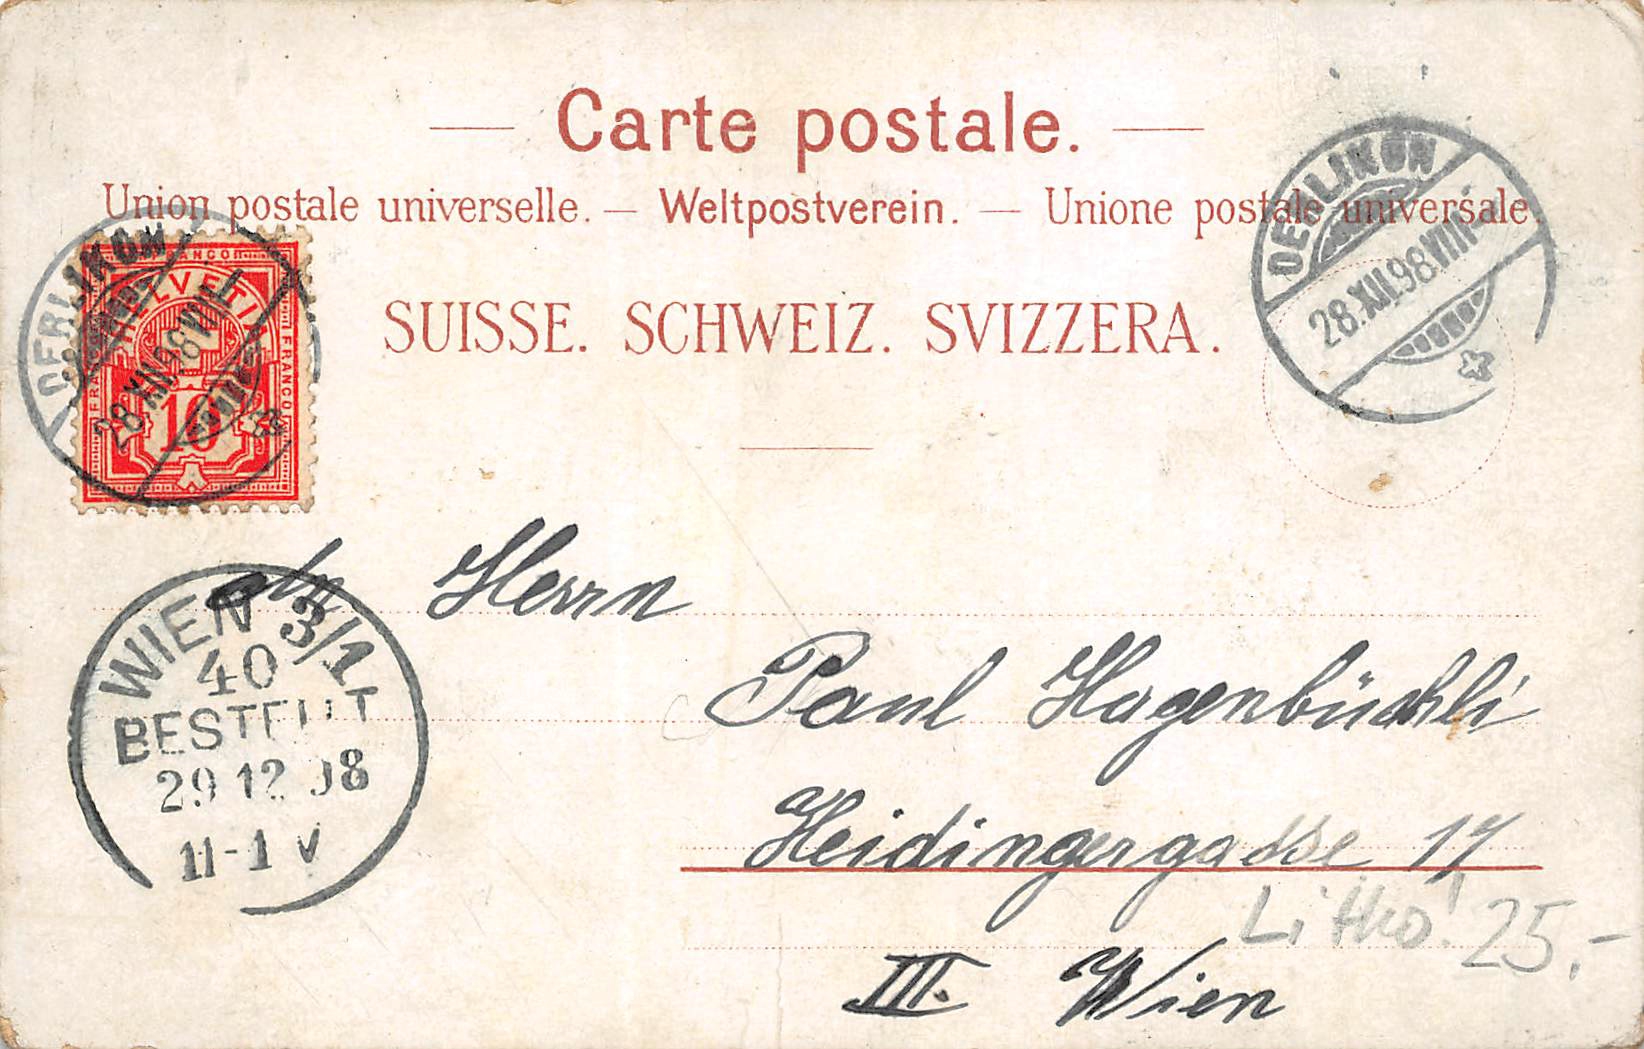 Carte postale.
Union postale universelle. — Weltpostverein. — Unione postale universale.
SUISSE. SCHWEIZ. SVIZZERA.
OERLIKON
28.XII.98.VIII-
FRANCO
HELVETIA
FRANCO
FRANCO
10
OERLIKON
28.XII.98.VIII
WIEN 3/1
40
BESTELLT
29 12 98
11-1 V
An Herrn
Paul Hagenbüchli
Heidingergasse 17
III. Wien
Litho! 25.-